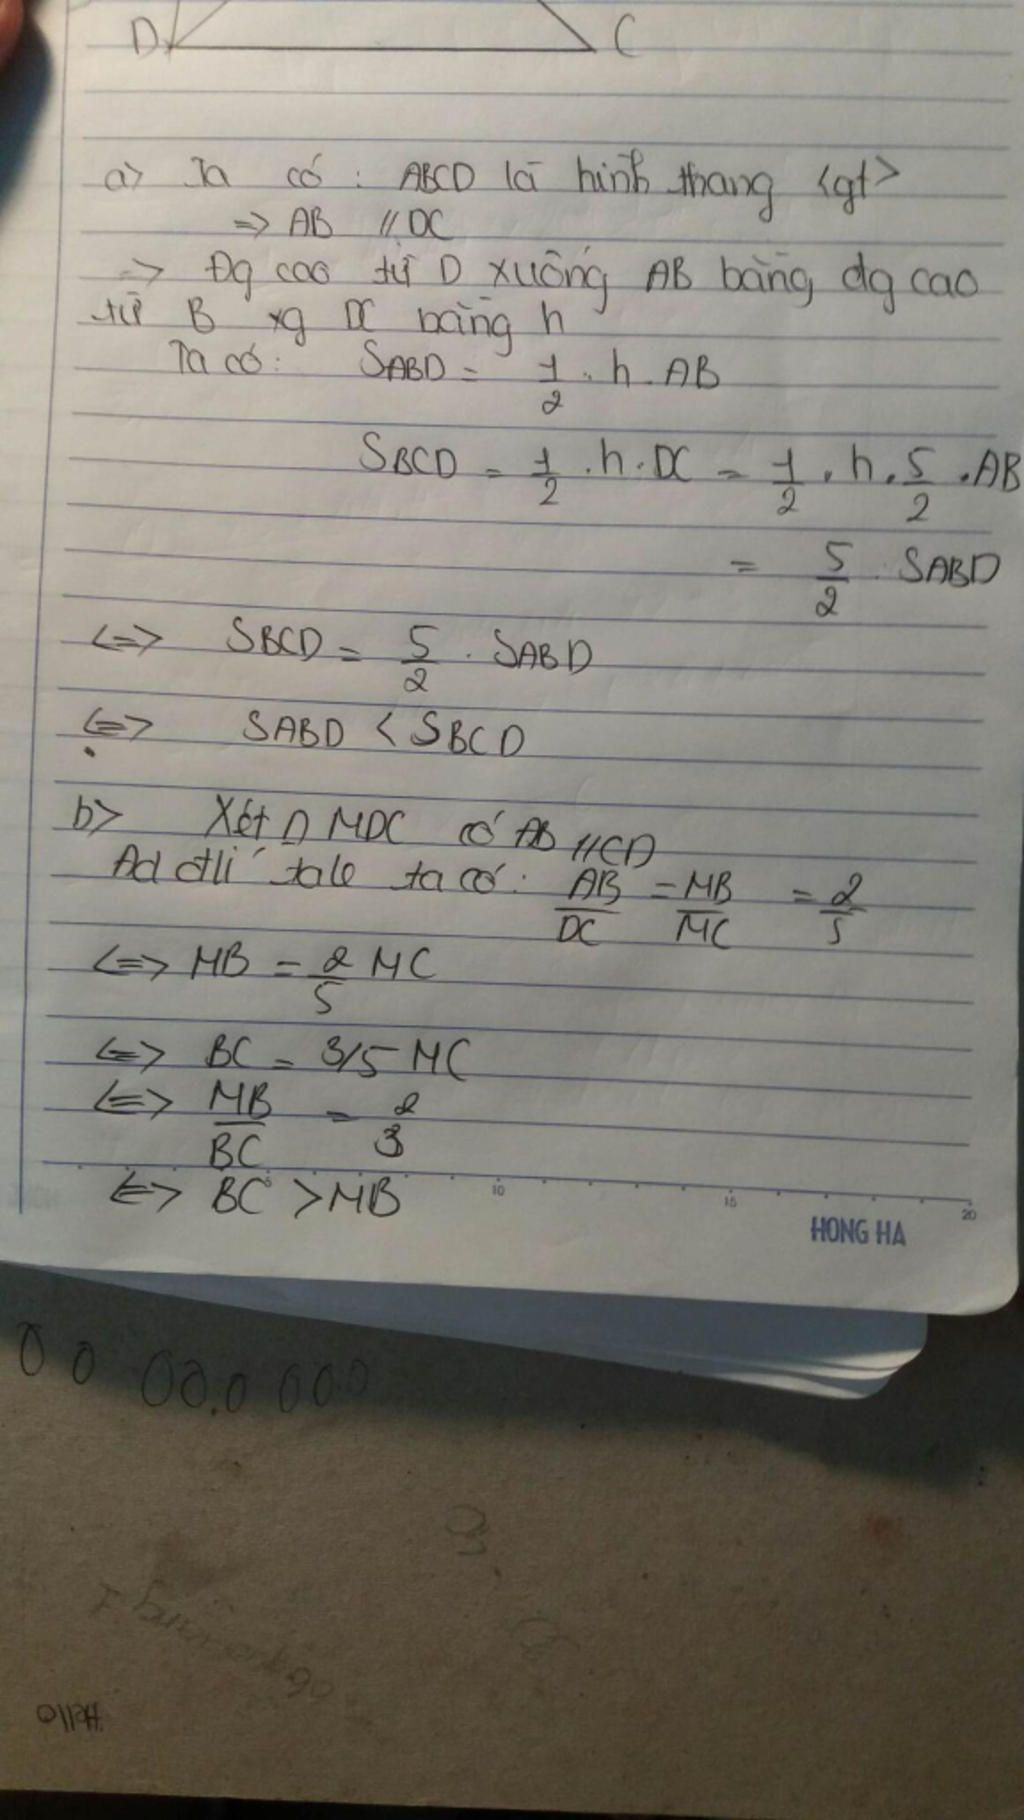 D C
a> Ta có : ABCD là hình thang <gt>
=> AB // DC
=> Đg cao từ D xuống AB bằng đg cao
từ B xg DC bằng h
Ta có: SABD = 1/2 . h . AB
SBCD = 1/2 . h . DC = 1/2 . h . 5/2 . AB
= 5/2 . SABD
<=> SBCD = 5/2 . SABD
<=> SABD < SBCD
b> Xét Δ MDC có AB // CD
Ad đlí tale ta có: AB/DC = MB/MC = 2/5
<=> MB = 2/5 MC
<=> BC = 3/5 MC
<=> MB/BC = 2/3
<=> BC > MB
10 15 20
HONG HA
Hello